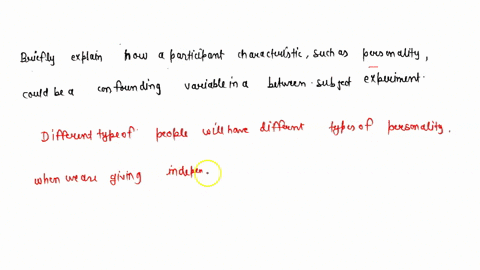 Briefly explain how a participant characteristic, such as personality,
could be a confounding variable in a between-subject experiment.
Different type of people will have different types of personality.
when we are giving indepen